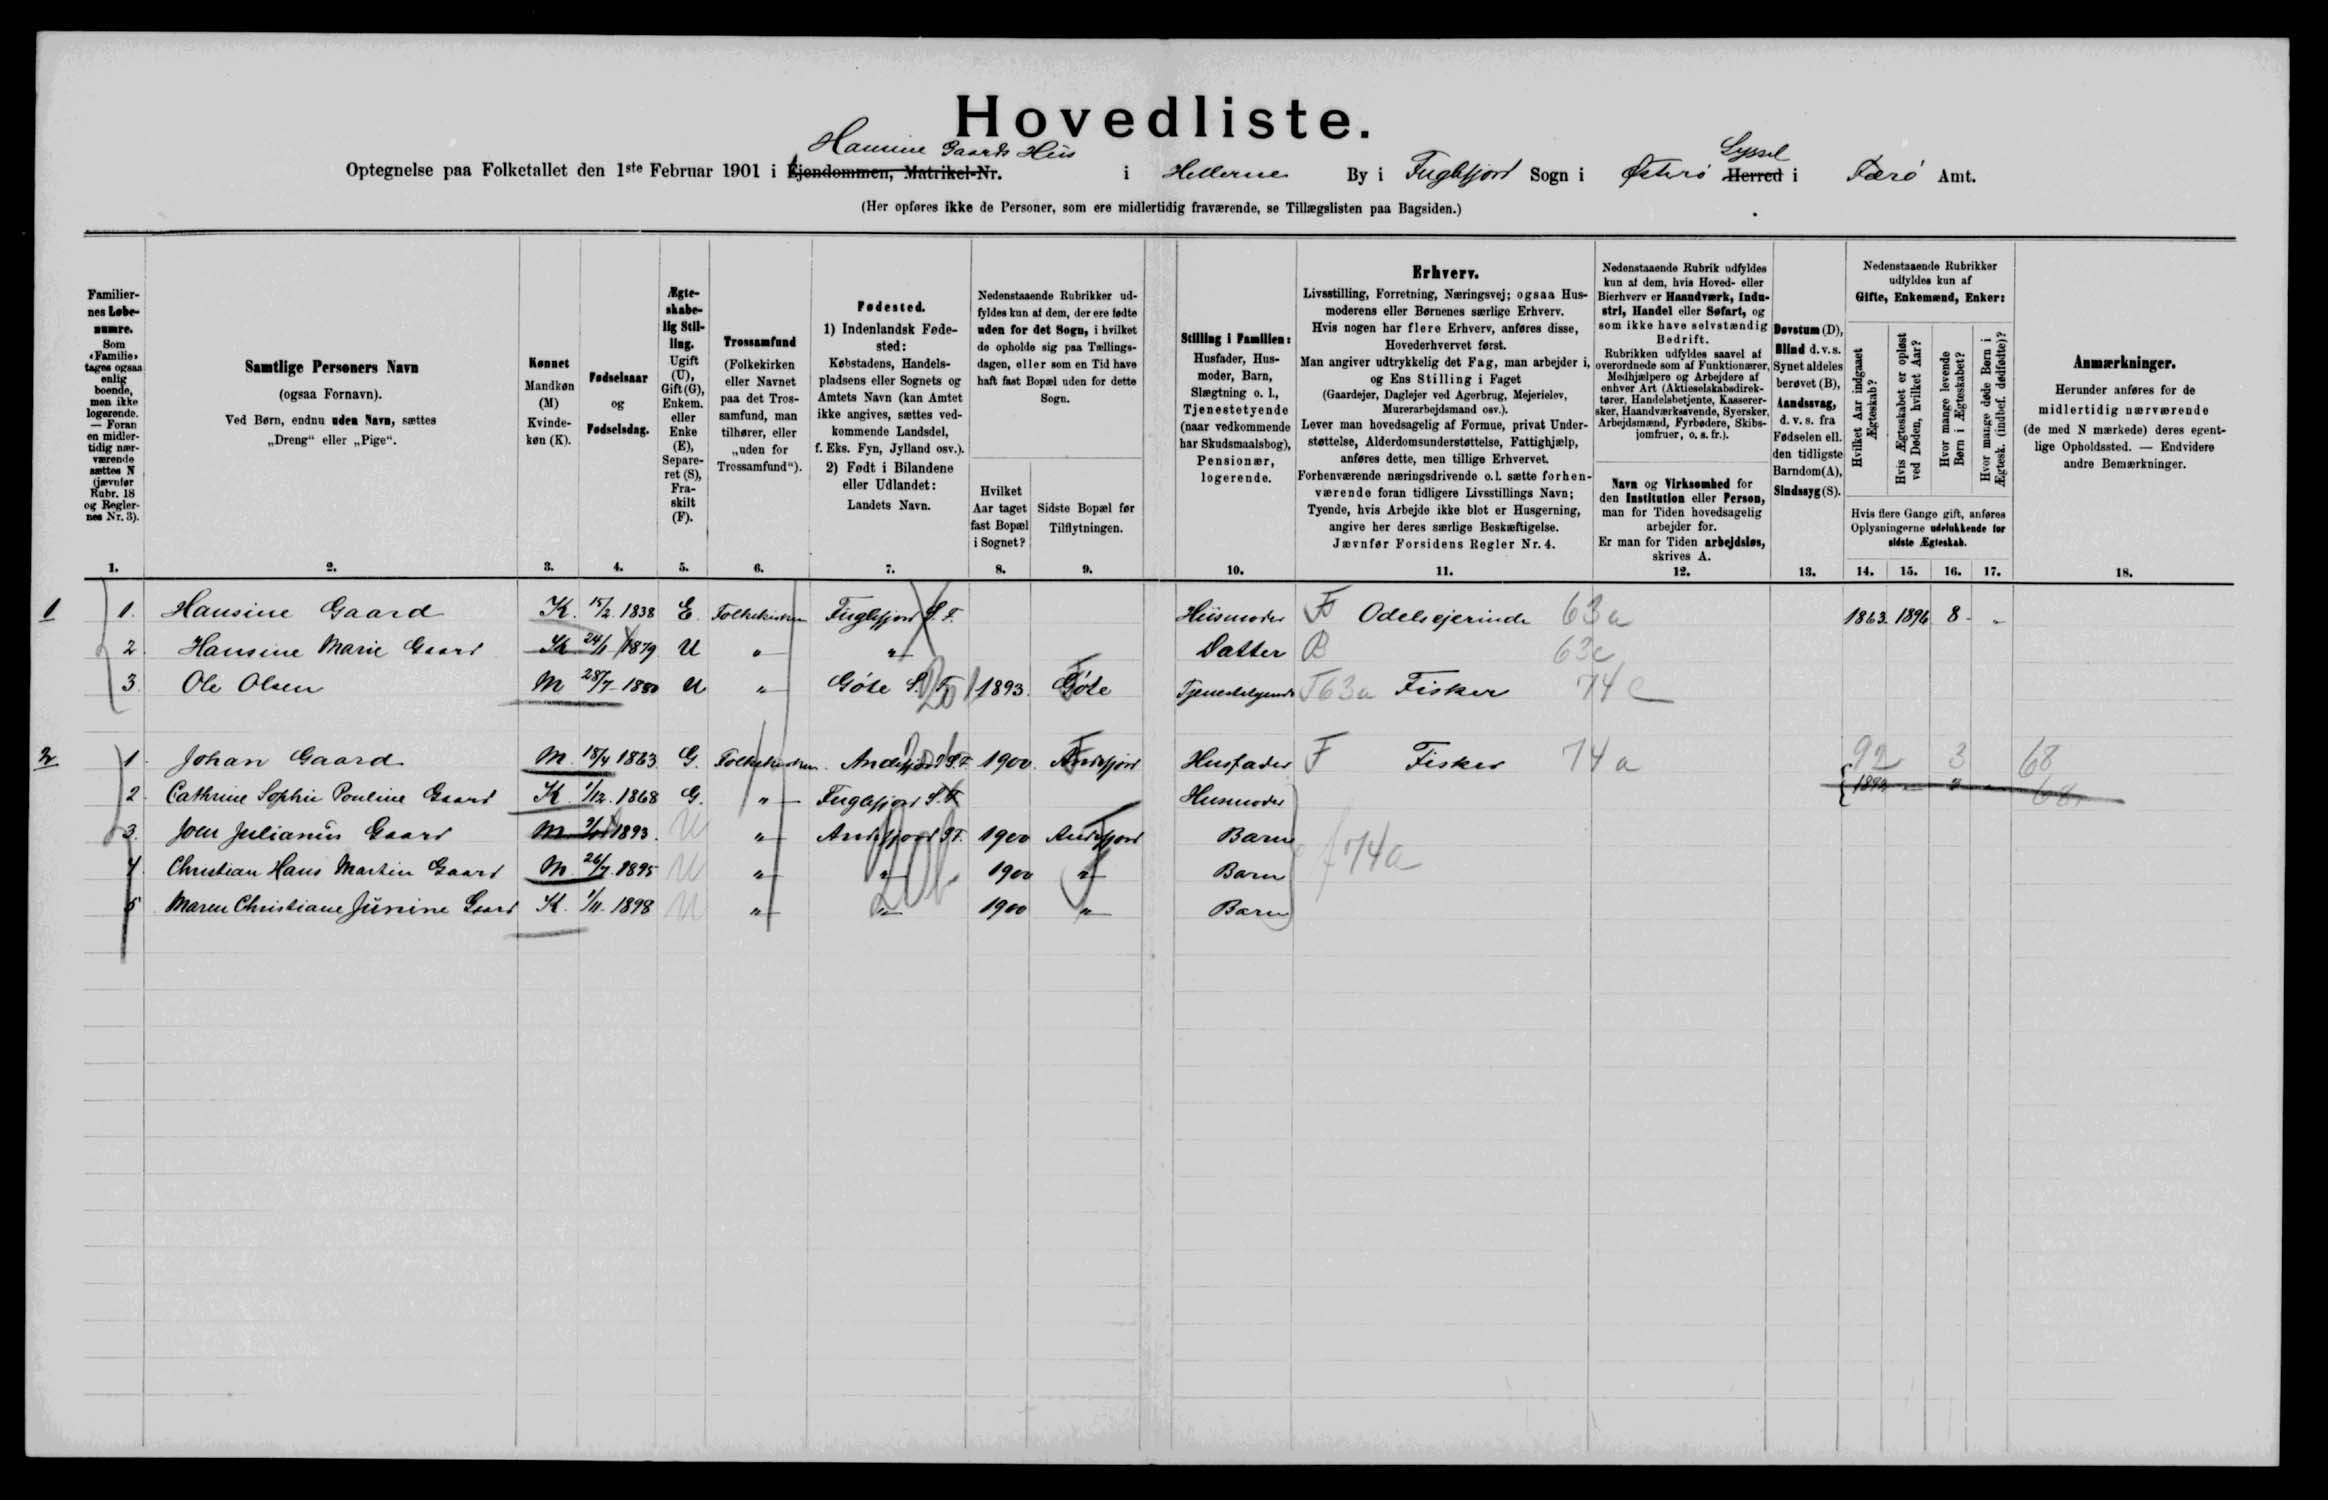 Hovedliste.
Hansine Gaards Hus
Optegnelse paa Folketallet den 1ste Februar 1901 i Ejendommen, Matrikel-Nr. i Hellerne By i Fuglefjord Sogn i Østerø Herred Syssel i Færø Amt.
(Her opføres ikke de Personer, som ere midlertidig fraværende, se Tillægslisten paa Bagsiden.)
Familiernes Løbenumre. Som «Familie» tages ogsaa enlig boende, men ikke logerende. — Foran en midlertidig nærværende sættes N (jævnfør Rubr. 18 og Reglernes Nr. 3).
Samtlige Personers Navn (ogsaa Fornavn). Ved Børn, endnu uden Navn, sættes „Dreng“ eller „Pige“.
Kønnet Mandkøn (M) Kvindekøn (K).
Fødselsaar og Fødselsdag.
Ægteskabelig Stilling. Ugift (U), Gift (G), Enkem. eller Enke (E), Separeret (S), Fraskilt (F).
Trossamfund (Folkekirken eller Navnet paa det Trossamfund, man tilhører, eller „uden for Trossamfund“).
Fødested. 1) Indenlandsk Fødested: Købstadens, Handelspladsens eller Sognets og Amtets Navn (kan Amtet ikke angives, sættes vedkommende Landsdel, f. Eks. Fyn, Jylland osv.). 2) Født i Bilandene eller Udlandet: Landets Navn.
Nedenstaaende Rubrikker udfyldes kun af dem, der ere fødte uden for det Sogn, i hvilket de opholde sig paa Tællingsdagen, eller som en Tid have haft fast Bopæl uden for dette Sogn.
Hvilket Aar taget fast Bopæl i Sognet?
Sidste Bopæl før Tilflytningen.
Stilling i Familien: Husfader, Husmoder, Barn, Slægtning o. l., Tjenestetyende (naar vedkommende har Skudsmaalsbog), Pensionær, logerende.
Erhverv.
Livsstilling, Forretning, Næringsvej; ogsaa Husmoderens eller Børnenes særlige Erhverv.
Hvis nogen har flere Erhverv, anføres disse, Hovederhvervet først.
Man angiver udtrykkelig det Fag, man arbejder i, og Ens Stilling i Faget (Gaardejer, Daglejer ved Agerbrug, Mejerielev, Murerarbejdsmand osv.).
Lever man hovedsagelig af Formue, privat Understøttelse, Alderdomsunderstøttelse, Fattighjælp, anføres dette, men tillige Erhvervet.
Forhenværende næringsdrivende o.l. sætte forhenværende foran tidligere Livsstillings Navn; Tyende, hvis Arbejde ikke blot er Husgerning, angive her deres særlige Beskæftigelse.
Jævnfør Forsidens Regler Nr. 4.
Nedenstaaende Rubrik udfyldes kun af dem, hvis Hoved- eller Bierhverv er Haandværk, Industri, Handel eller Søfart, og som ikke have selvstændig Bedrift.
Rubrikken udfyldes saavel af overordnede som af Funktionærer, Medhjælpere og Arbejdere af enhver Art (Aktieselskabsdirektører, Handelsbetjente, Kasserersker, Haandværkssvende, Syersker, Arbejdsmænd, Fyrbødere, Skibsjomfruer, o. s. fr.).
Navn og Virksomhed for den Institution eller Person, man for Tiden hovedsagelig arbejder for.
Er man for Tiden arbejdsløs, skrives A.
Døvstum (D), Blind d. v. s. Synet aldeles berøvet (B), Aandssvag, d. v. s. fra Fødselen ell. den tidligste Barndom (A), Sindssyg (S).
Nedenstaaende Rubrikker udfyldes kun af Gifte, Enkemænd, Enker:
Hvilket Aar indgaaet Ægteskab?
Hvis Ægteskabet er opløst ved Døden, hvilket Aar?
Hvor mange levende Børn i Ægteskabet?
Hvor mange døde Børn i Ægtesk. (indbef. dødfødte)?
Hvis flere Gange gift, anføres Oplysningerne udelukkende for sidste Ægteskab.
Anmærkninger. Herunder anføres for de midlertidig nærværende (de med N mærkede) deres egentlige Opholdssted. — Endvidere andre Bemærkninger.
1. 2. 3. 4. 5. 6. 7. 8. 9. 10. 11. 12. 13. 14. 15. 16. 17. 18.
1 1. Hansine Gaard K. 15/2 1838 E. Folkekirken Fuglefjord S. F. Husmoder F Odelsejerinde 63a 1863. 1896 8 - „
2. Hansine Marie Gaard K 24/1 1879 U „ „ Datter B 63c
3. Ole Olsen M 28/7 1880 U „ Göte S. F. 1893. Göte Tjenestetyende T63a Fisker 74c
2 1. Johan Gaard M. 18/4 1863 G. Folkekirken. Andefjord S. F. 1900. Andefjord Husfader F Fisker 74a 92 3 68
2. Cathrine Sophie Pouline Gaard K. 1/12. 1868 G. „ Fuglefjord S. F. Husmoder 1892 „ 68
3. Joen Julianus Gaard M 1893. U „ Andefjord S. F. 1900 Andefjord Barn
4. Christian Hans Martin Gaard M. 26/7. 1895 U „ „ 20b 1900 „ Barn 74a
5. Maren Christiane Junine Gaard K. 1/11. 1898 U „ „ 1900 „ Barn